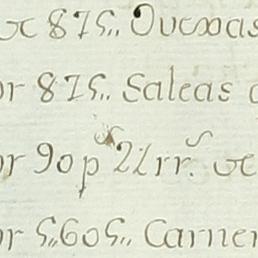 de 875,, Ovexas
or 875,, Saleas
or 90 p.s 22 rr.s de
or 5,,605,, Carner